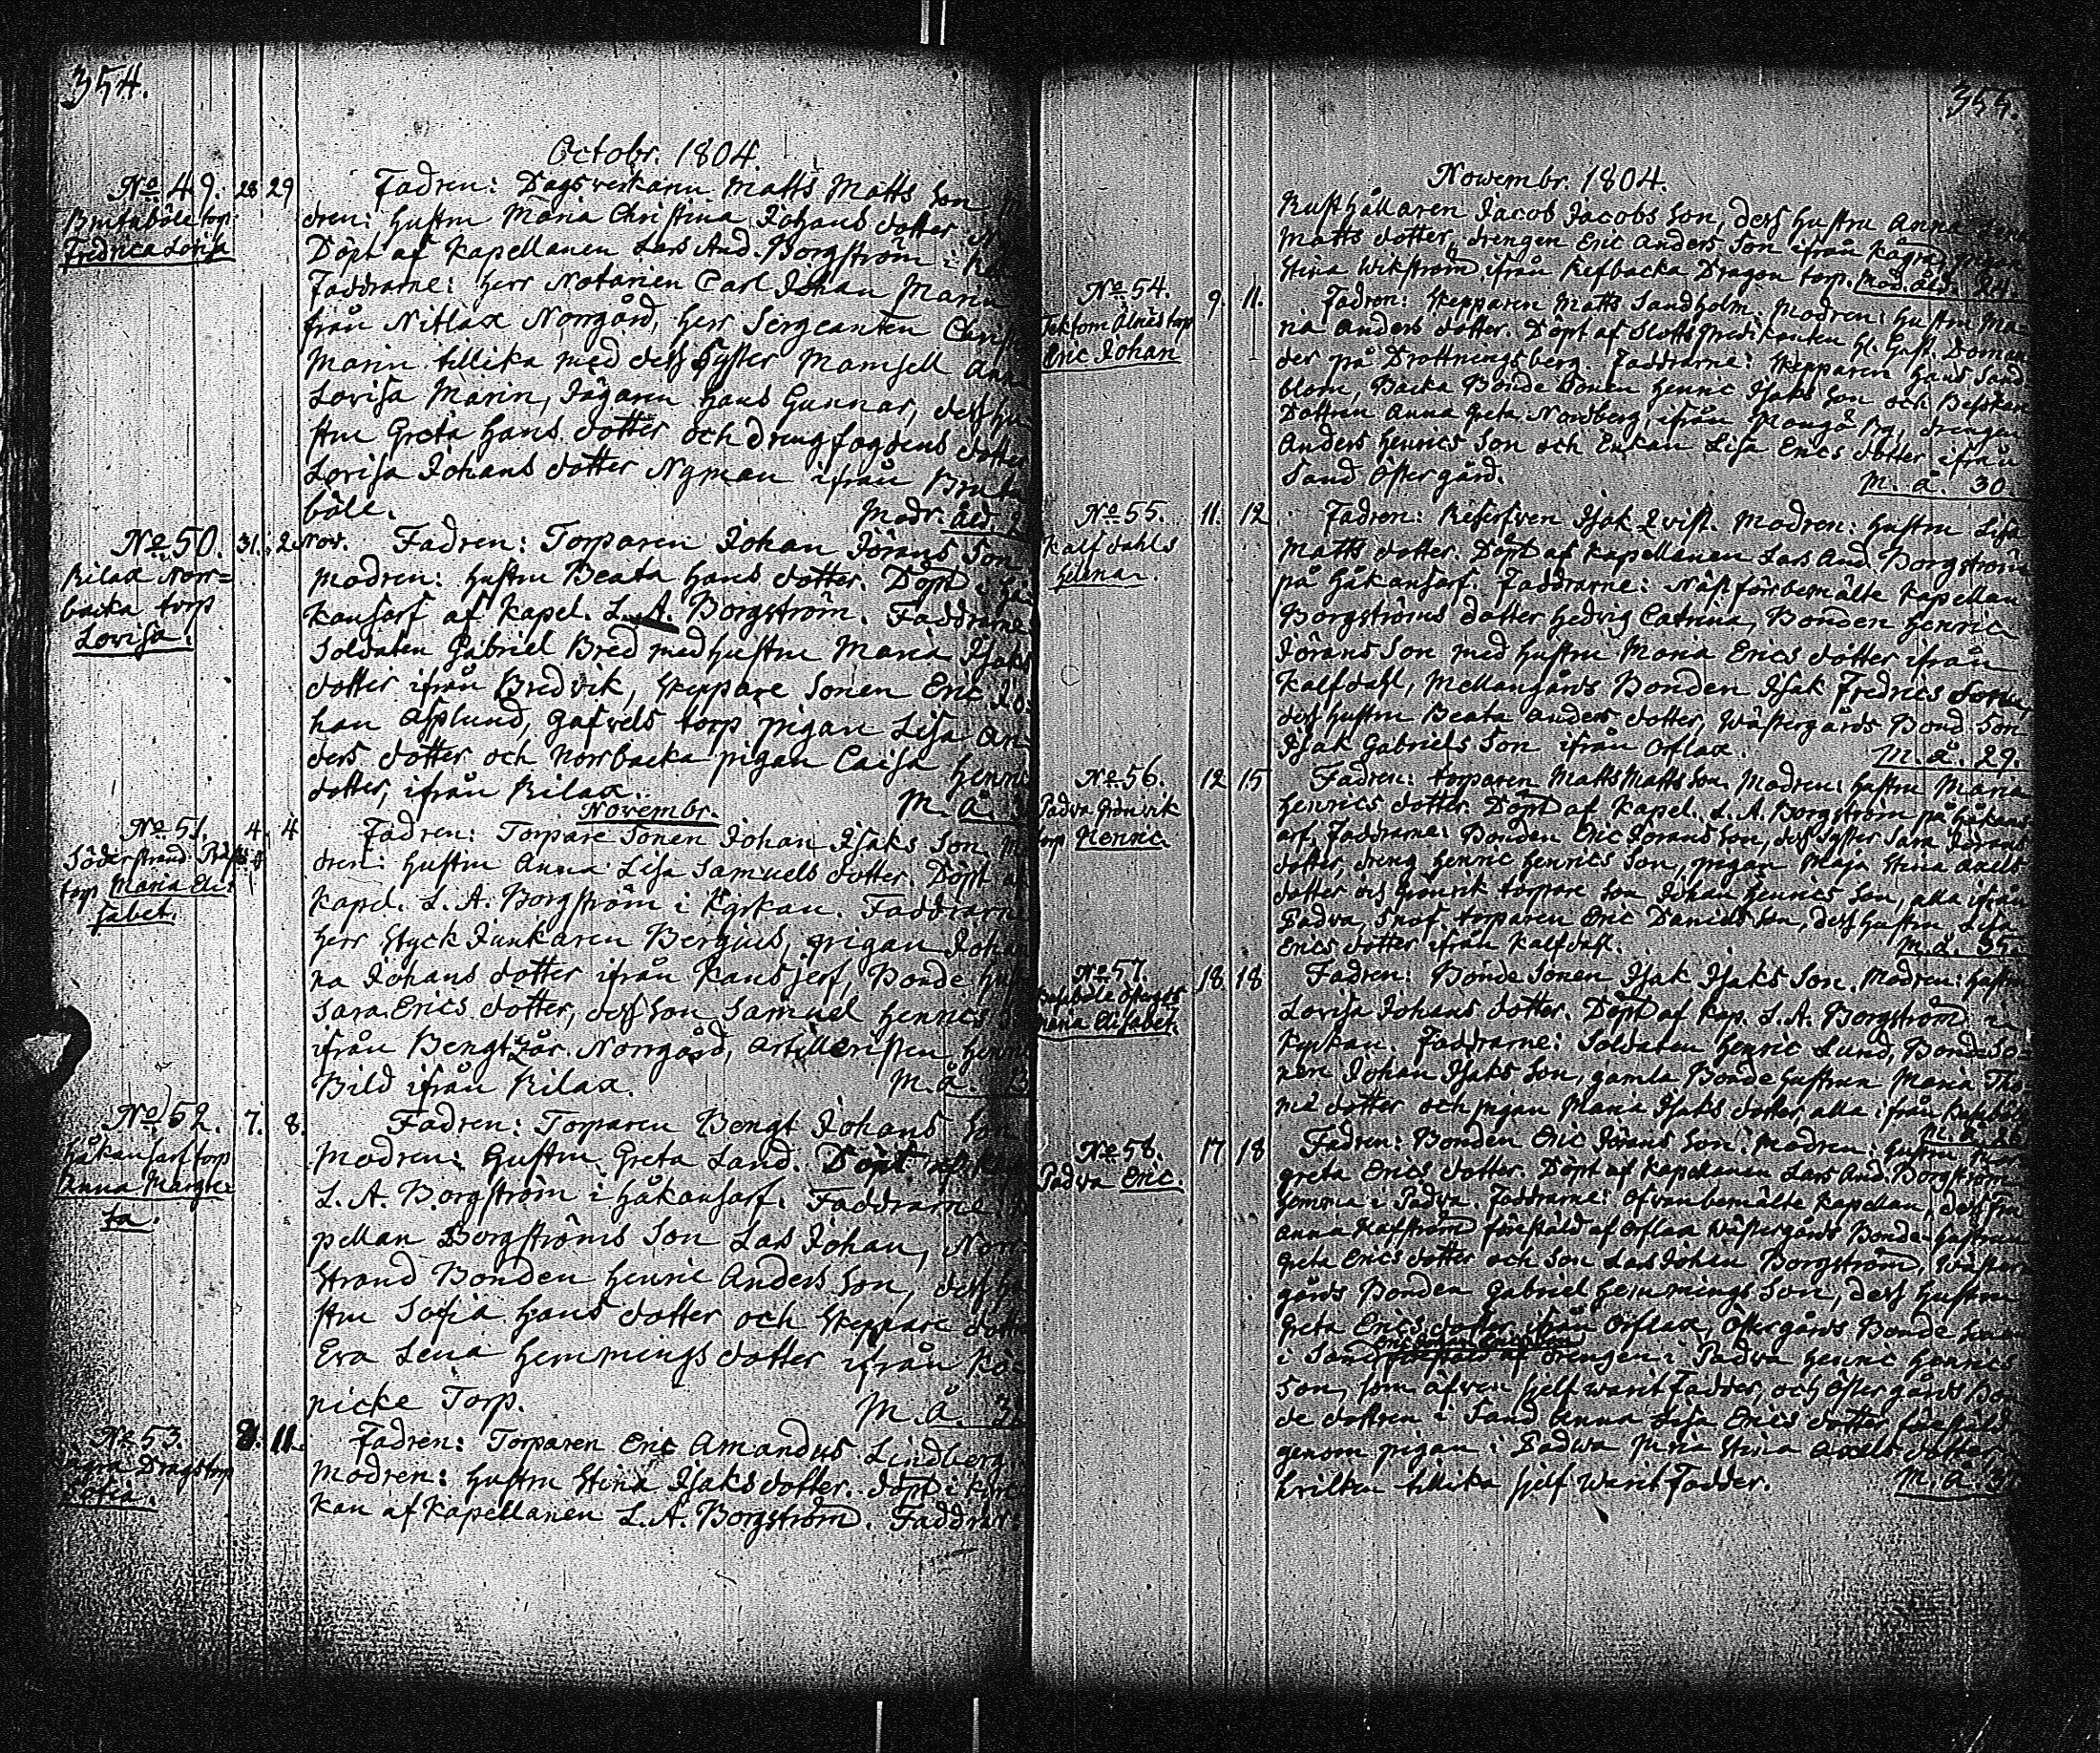 354.
Octobr. 1804.
No 49. 28 29
Brutuböle torp
Fredrica Lovisa
Fadren: Dagsverkarn Matts Matts Son
dren: hustru Maria Christina Johans dotter
Döpt af Kapellanen Lars And. Borgström i
Faddrarne: Herr Notarien Carl Johan Marin
från Nitlax Norrgård, Herr Sergeanten
Marin tillika med dess Syster Mamsell
Lovisa Marin, Jägaren Hans Gunnar, dess
stru Greta Hans dotter och drengfogdens dotter
Lovisa Johans dotter Nyman ifrån
böle. Modr. åld.
No 50. 31. 2 Nov.
Rilax Norr=
backa torp
Lovisa.
Fadren: Torparen Johan Jörans Son
Modren: hustru Beata Hans dotter. Döpt i Hå=
kansarf af Kapel. L. A. Borgström. Faddrarne:
Soldaten Gabriel Bred med hustru Maria Isaks
dotter ifrån Bredvik, Skeppare Sonen Eric Jo=
han Asplund, Gafvels torp pigan Lisa An=
ders dotter och Norrbacka pigan Caisa
dotter, ifrån Rilax. M. å.
Novembr.
No 51. 4. 4
Söderstrand
torp Maria Eli=
sabet.
Fadren: Torpare Sonen Johan Isaks Son
dren: hustru Anna Lisa Samuels dotter. Döpt af
Kapel. L. A. Borgström i Kyrkan. Faddrarne
Herr Styck Junkaren Bergius, pigan
na Johans dotter ifrån Kansjerf, Bonde
Sara Erics dotter, dess Son Samuel Henrics
ifrån Bengtsår Norrgård, Artilleristen
Bild ifrån Rilax. M. å.
No 52. 7. 8.
Håkansarf torp
Anna Margre=
ta.
Fadren: Torparen Bengt Johans Son
Modren: Hustru Greta Sand. Döpt af
L. A. Borgström i Håkansarf. Faddrarne
pellan Borgströms Son Lars Johan, Norr=
Strand Bonden Henric Anders Son, dess
stru Sofia Hans dotter och Skeppare dotter
Eva Lena Hemmings dotter ifrån Kö=
picke Torp. M. å.
No 53. 8. 11.
Dragstorp
Sofia.
Fadren: Torparen Eric Amandus Lindberg
Modren: hustru Stina Isaksdotter. Döpt i Kyr=
kan af Kapellanen L. A. Borgström. Faddrar:
355.
Novembr. 1804.
Rusthållaren Jacob Jacobs Son, dess hustru Anna
Matts dotter, drengen Eric Anders Son ifrån Kågra,
Stina Wikström ifrån Refbacka Dragon torp. Mod. åld. 24.
No 54. 9. 11.
torp
Eric Johan
Fadren: Skepparen Matts Sandholm. Modren: hustru Ma=
ria Anders dotter. Döpt af Slotts Predikanten
der på Drottningsberg. Faddrarne: Skepparen Hans Sand=
blom, Backa Bonde Sonen Henric Isaks Son och
Dottren Anna Greta Nordberg, ifrån drengen
Anders Henrics Son och Enkan Lisa Erics dotter ifrån
Sand Östergård. M. å. 30.
No 55. 11. 12
Kalfdahls
Helena.
Fadren: Isak Qvist. Modren: hustru Lisa
Matts dotter. Döpt af Kapellanen Lars And. Borgström
på Håkansarf. Faddrarne: Näst förbemälte Kapellan
Borgströms dotter Hedvig Catrina, Bonden Henric
Jörans Son med hustru Maria Erics dotter ifrån
Kalfdahl, Mellangårds Bonden Isak Fredrics Son,
dess hustru Beata Anders dotter, Wästergårds Bond Son
Isak Gabriels Son ifrån Orslax. M. å. 29.
No 56. 12 15
Padva Grönvik
torp Henric.
Fadren: torparen Matts Matts Son. Modren: hustru Maria
Henrics dotter. Döpt af Kapel. L. A. Borgström på Håkans=
arf. Faddrarne: Bonden Eric Jörans Son, dess Syster Sara Jörans
dotter, dreng Henric Henrics Son, pigan Maja Stina Axels
dotter och Grönvik torpare Son Johan Henrics Son, alla ifrån
Padva, torparen Eric Daniels Son, dess hustru Lisa
Erics dotter ifrån Kalfdahl. M. å.
No 57. 18 18
Maria Elisabet.
Fadren: Bonde Sonen Isak Isaks Son. Modren: hustru
Lovisa Johans dotter. Döpt af Kap. L. A. Borgström i
Kyrkan. Faddrarne: Soldaten Henric Lund, Bonde So=
nen Johan Isaks Son, gamla Bonde hustrun Maria Tho=
mæ dotter och pigan Maria Isaks dotter alla ifrån
M. å.
No 58. 17 18
Padva Eric.
Fadren: Bonden Eric Jörans Son. Modren: hustru Mar=
greta Erics dotter. Döpt af Kapellanen Lars And. Borgström
hemma i Padva. Faddrarne: Ofvanbemälte Kapellan, dess Fru
Anna föreställd af Orslax Wästergårds Bonde hustrun
Greta Erics dotter och Son Lars Johan Borgström, Wäster=
gårds Bonden Gabriel Hemmings Son, dess hustru
Greta Erics dotter ifrån Orslax, Östergårds Bonde
i Sand drengen i Padva Henric Henrics
Son, som äfven sjelf warit Fadder, och Östergårds Bon=
de dottren i Sand Anna Lisa Erics dotter föreställd
genom pigan i Padva Maria Stina Axels dotter,
hvilken tillika sjelf warit Fadder. M. å.